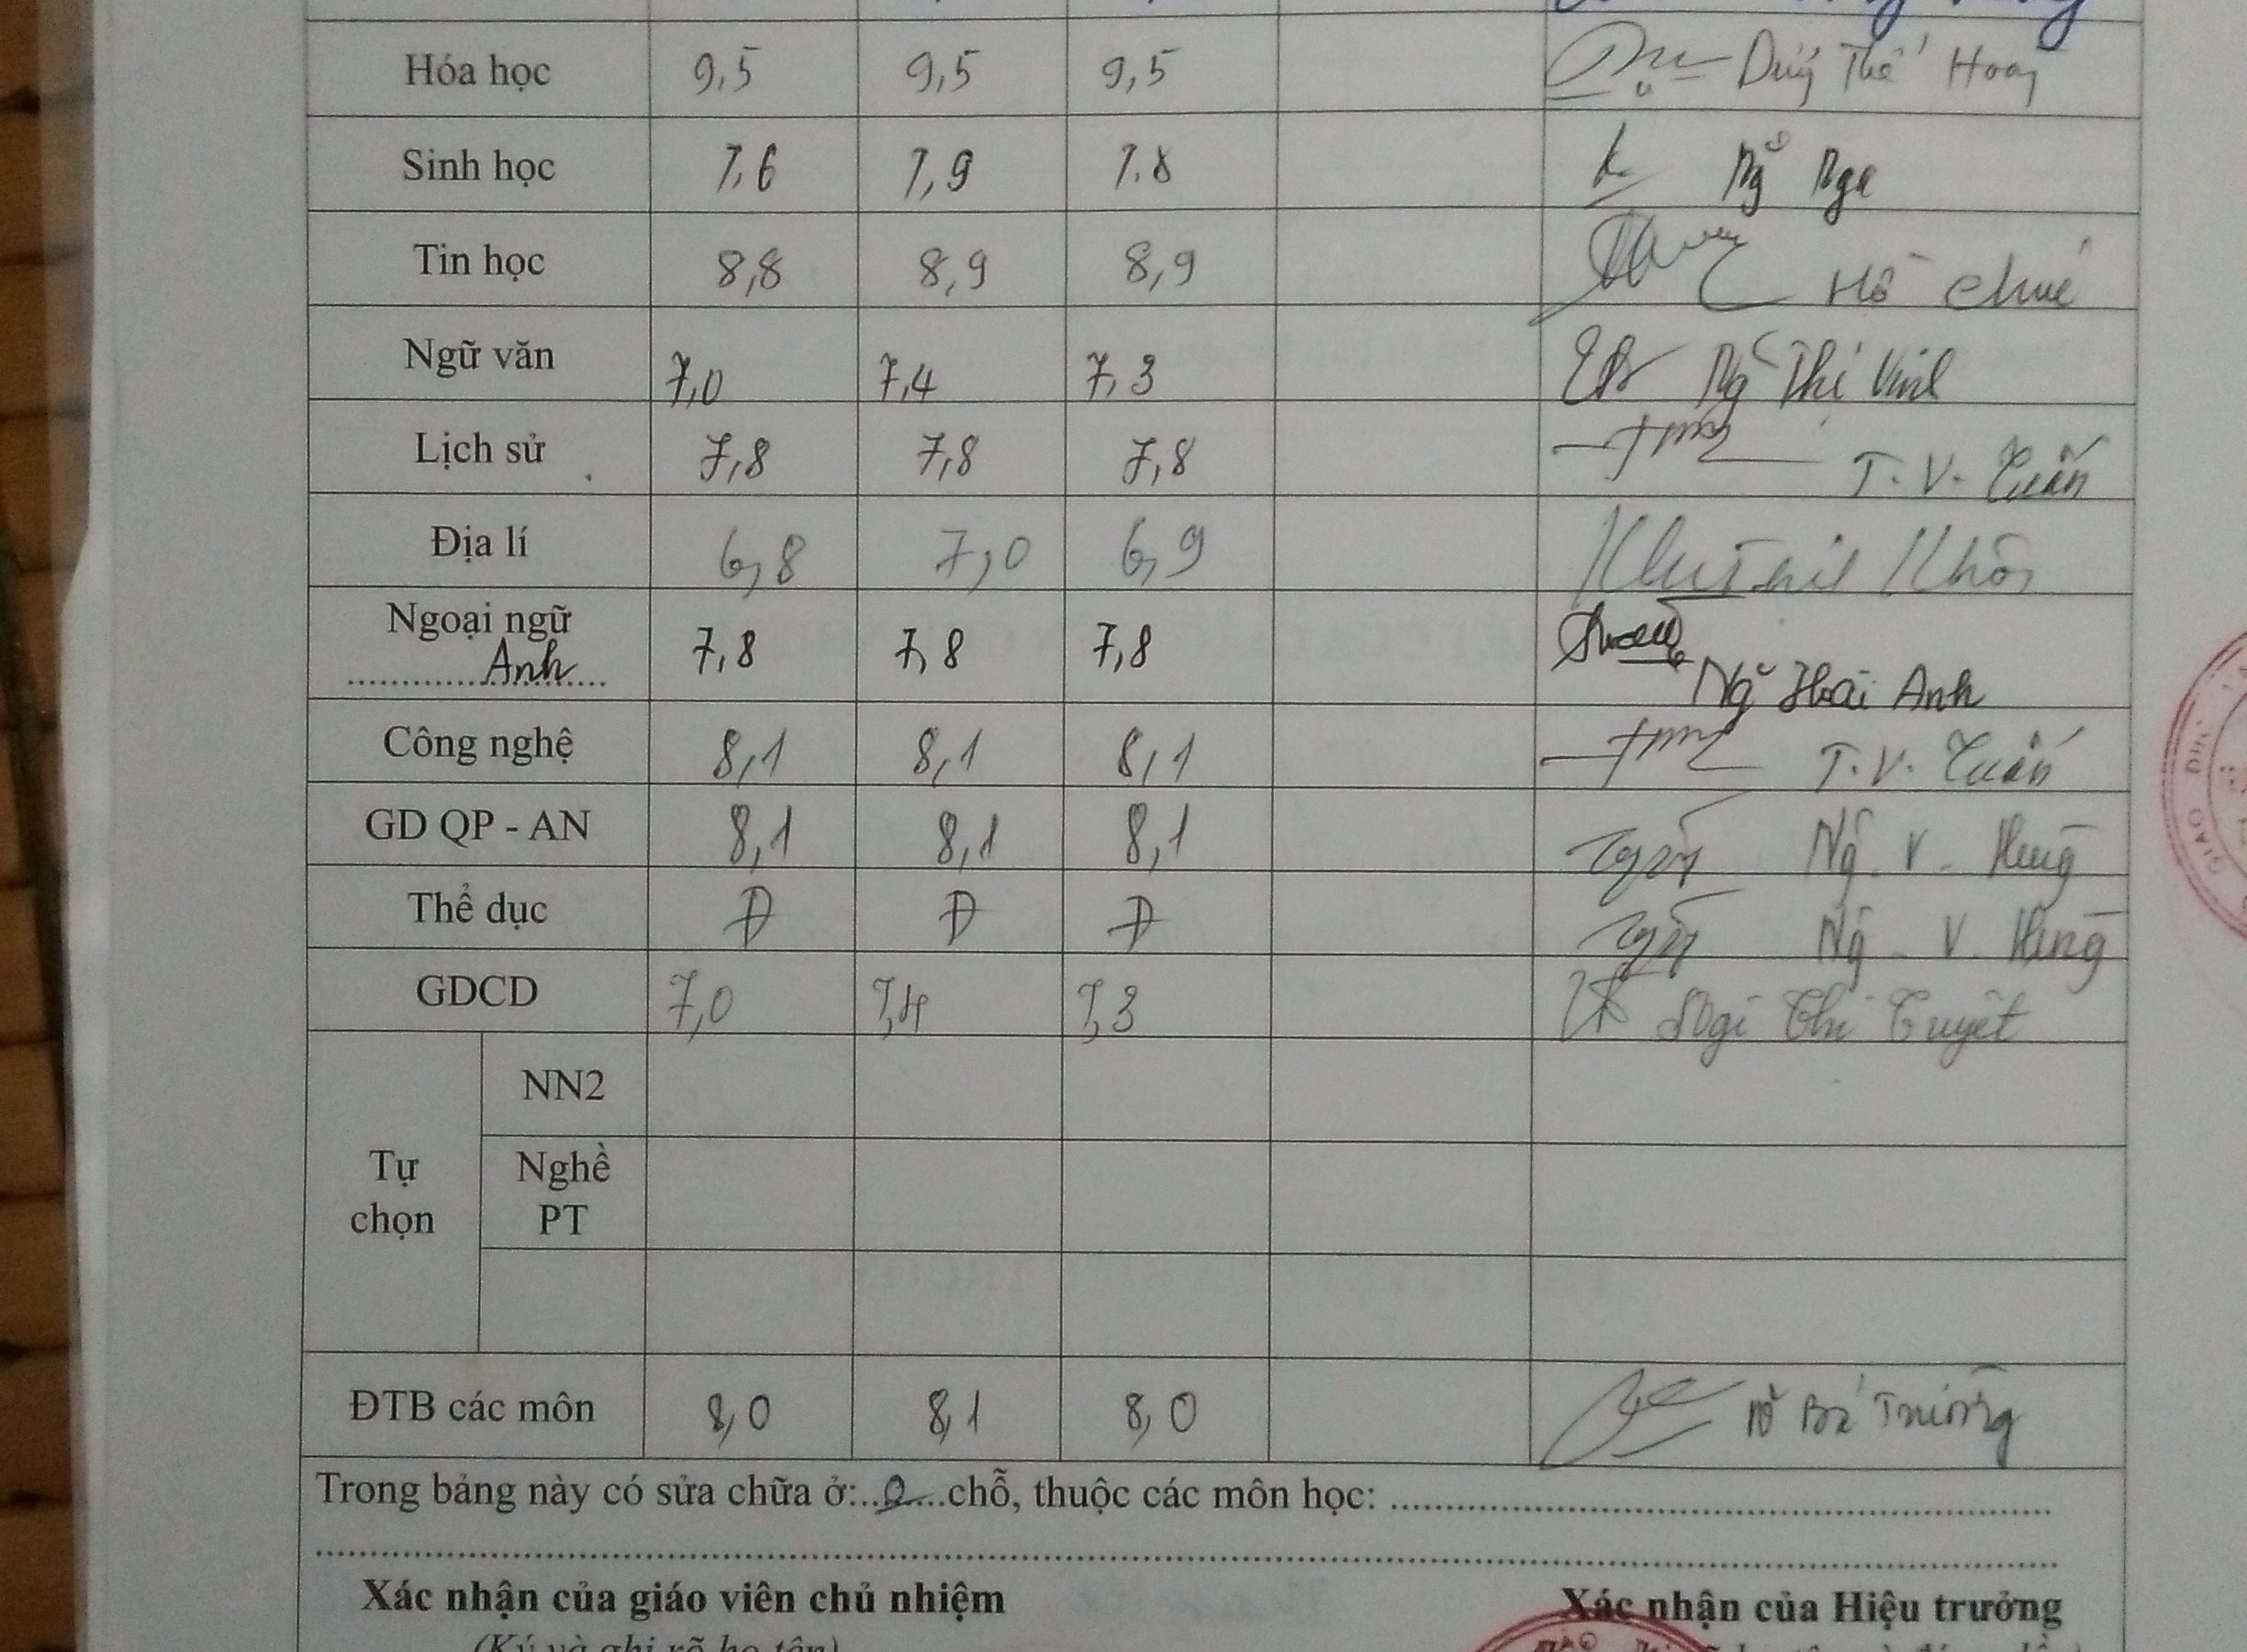 Hóa học 9,5 9,5 9,5 Duy Thế Hoàng
Sinh học 7,6 7,9 7.8 Ng Nga
Tin học 8,8 8,9 8,9 Hồ
Ngữ văn 7,0 7,4 7,3 Ng Thị Vinh
Lịch sử 7,8 7,8 7,8 T. V. Tuấn
Địa lí 6,8 7,0 6,9
Ngoại ngữ
Anh 7,8 7,8 7,8 Ng Hoài Anh
Công nghệ 8,1 8,1 8,1 T. V. Tuấn
GD QP - AN 8,1 8,1 8,1 Ng. V. Hùng
Thể dục Đ Đ Đ Ng. V. Hùng
GDCD 7,0 7,4 7,3 Thị Tuyết
Tự chọn
NN2
Nghề PT
ĐTB các môn 8,0 8,1 8,0 Bá Trường
Trong bảng này có sửa chữa ở:..0....chỗ, thuộc các môn học:
Xác nhận của giáo viên chủ nhiệm Xác nhận của Hiệu trưởng
(Ký và ghi rõ họ tên)
GIÁO DỤC